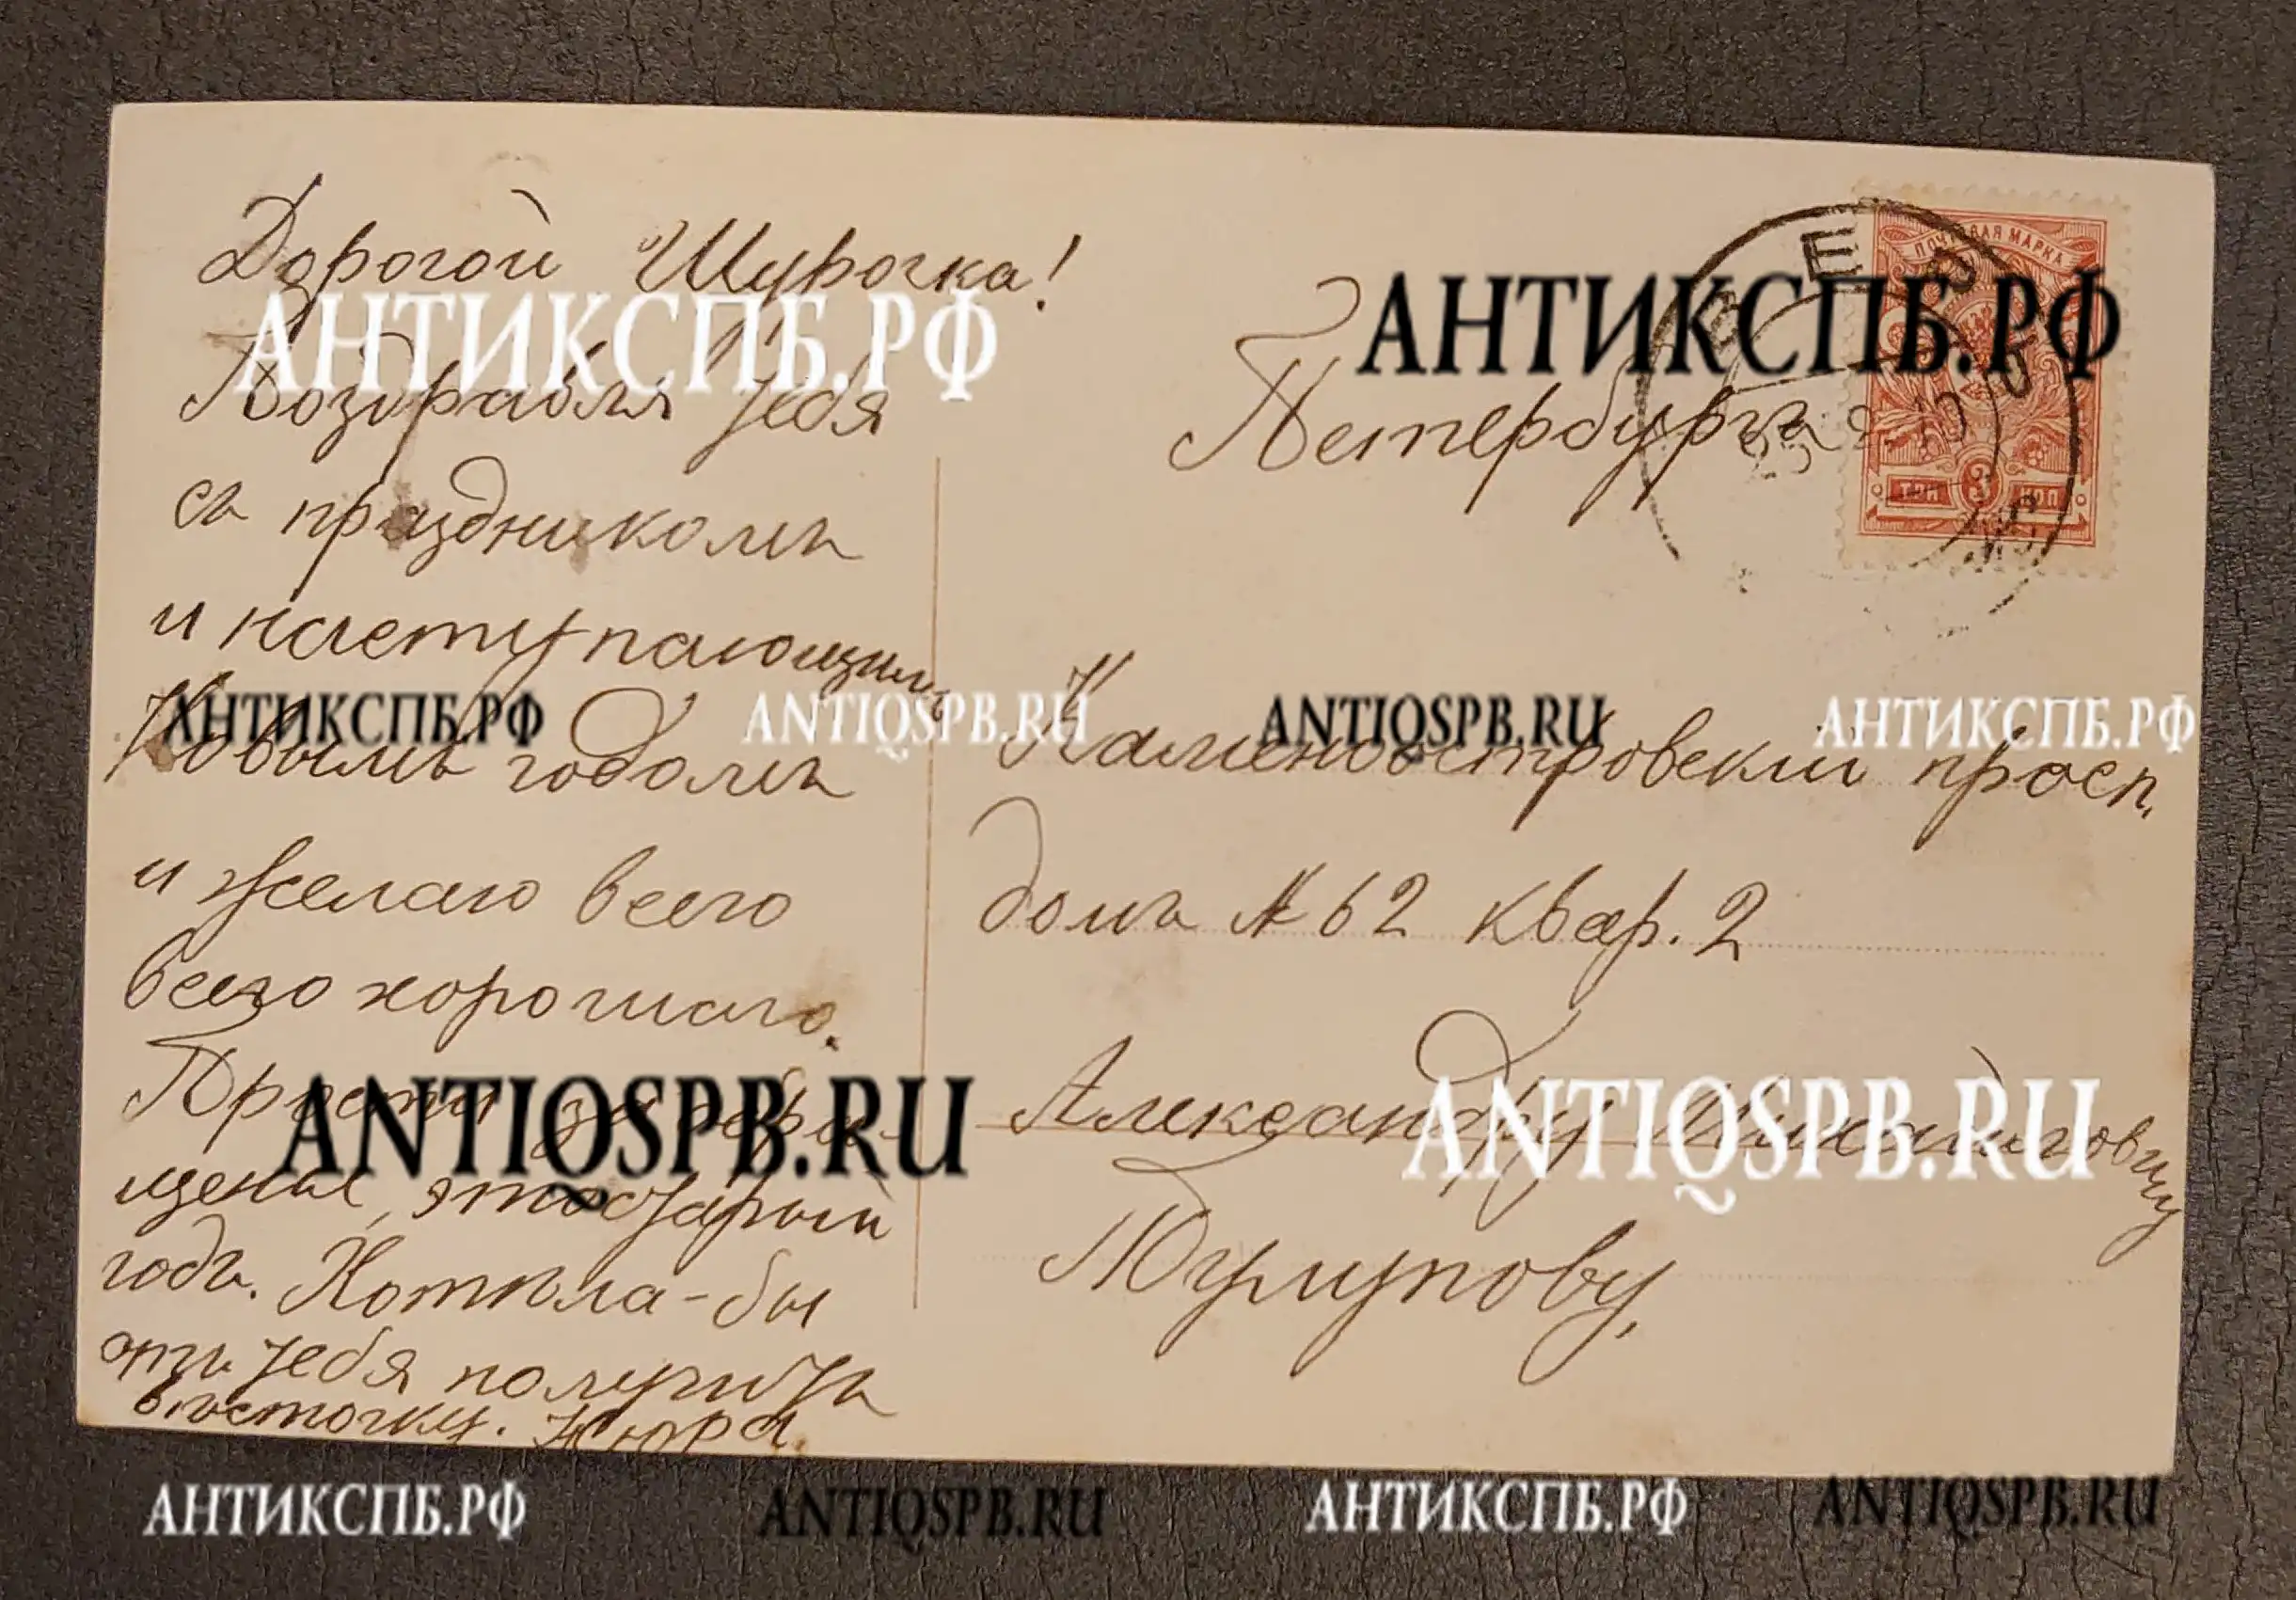 Дорогой Шурочка!
Поздравля тебя
съ праздникомъ
и наступающимъ
Новымъ годомъ
и желаю всего
всего хорошаго.
Прости за
щенье, это старый
годъ. Хотѣла-бы
отъ тебя получить
вѣсточку. Нюра.
Петербургъ
Каменоостровскій просп.
домъ № 62 квар. 2
Александру Михайловичу
ПОЧТОВАЯ МАРКА
ТРИ 3 КОП
АНТИКСПБ.РФ
АНТИКСПБ.РФ
АНТИКСПБ.РФ
ANTIQSPB.RU
ANTIQSPB.RU
АНТИКСПБ.РФ
ANTIQSPB.RU
ANTIQSPB.RU
АНТИКСПБ.РФ
ANTIQSPB.RU
АНТИКСПБ.РФ
ANTIQSPB.RU